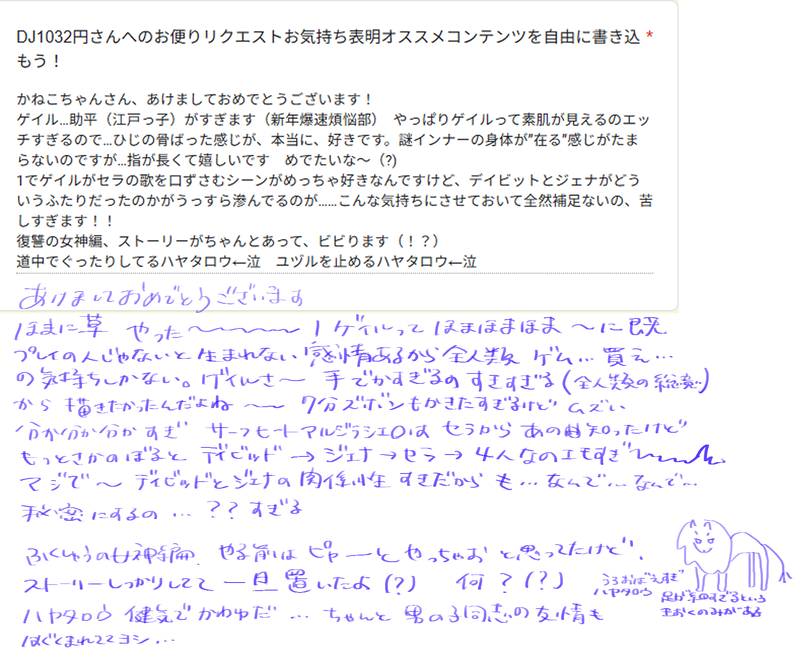 DJ1032円さんへのお便りリクエストお気持ち表明オススメコンテンツを自由に書き込 *
もう！
かねこちゃんさん、あけましておめでとうございます！
ゲイル…助平（江戸っ子）がすぎます（新年爆速煩悩部）　やっぱりゲイルって素肌が見えるのエッ
チすぎるので…ひじの骨ばった感じが、本当に、好きです。謎インナーの身体が"在る"感じがたま
らないのですが…指が長くて嬉しいです　めでたいな〜（?）
1でゲイルがセラの歌を口ずさむシーンがめっちゃ好きなんですけど、デイビットとジェナがどう
いうふたりだったのかがうっすら滲んでるのが……こんな気持ちにさせておいて全然補足ないの、苦
しすぎます！！
復讐の女神編、ストーリーがちゃんとあって、ビビります（！？）
道中でぐったりしてるハヤタロウ←泣　ユヅルを止めるハヤタロウ←泣
あけましておめでとうございます
ほまに草 やった〜〜〜〜 1ゲイルって ほまほまほま 〜に 既
プレイの人じゃないと生まれない感情あるから全人類 ゲム… 買え…
の気持ちしかない。ゲイルさ〜 手でかすぎるの すきすぎる(全人類の総意)
から 描きたかったんだよね 〜〜 7分ズボンもかきたすぎるけど ムズい
分か分か分か すぎ サーフ ヒート アルジラ シエロは セラから あの 知ったけど
もっとさかのぼると デイビッド → ジェナ → セラ → 4人なのエモすぎ
マジで〜 デイビッドとジェナの関係性 すきだから も… なんで… なんで…
秘密にするの … ？？ すぎる
ふくしゅうの女神編、やる前は ピャーーと やっちゃお と思ってたけど、
ストーリーしっかりしてて 一旦置いたよ(?) 何？(?)
ハヤタロウ 健気でかわゆだ … ちゃんと 男の子同志の友情も
はぐくまれててヨシ…
うろおぼえすぎ
ハヤタロウ
足が細すぎるという
きおくのみがある